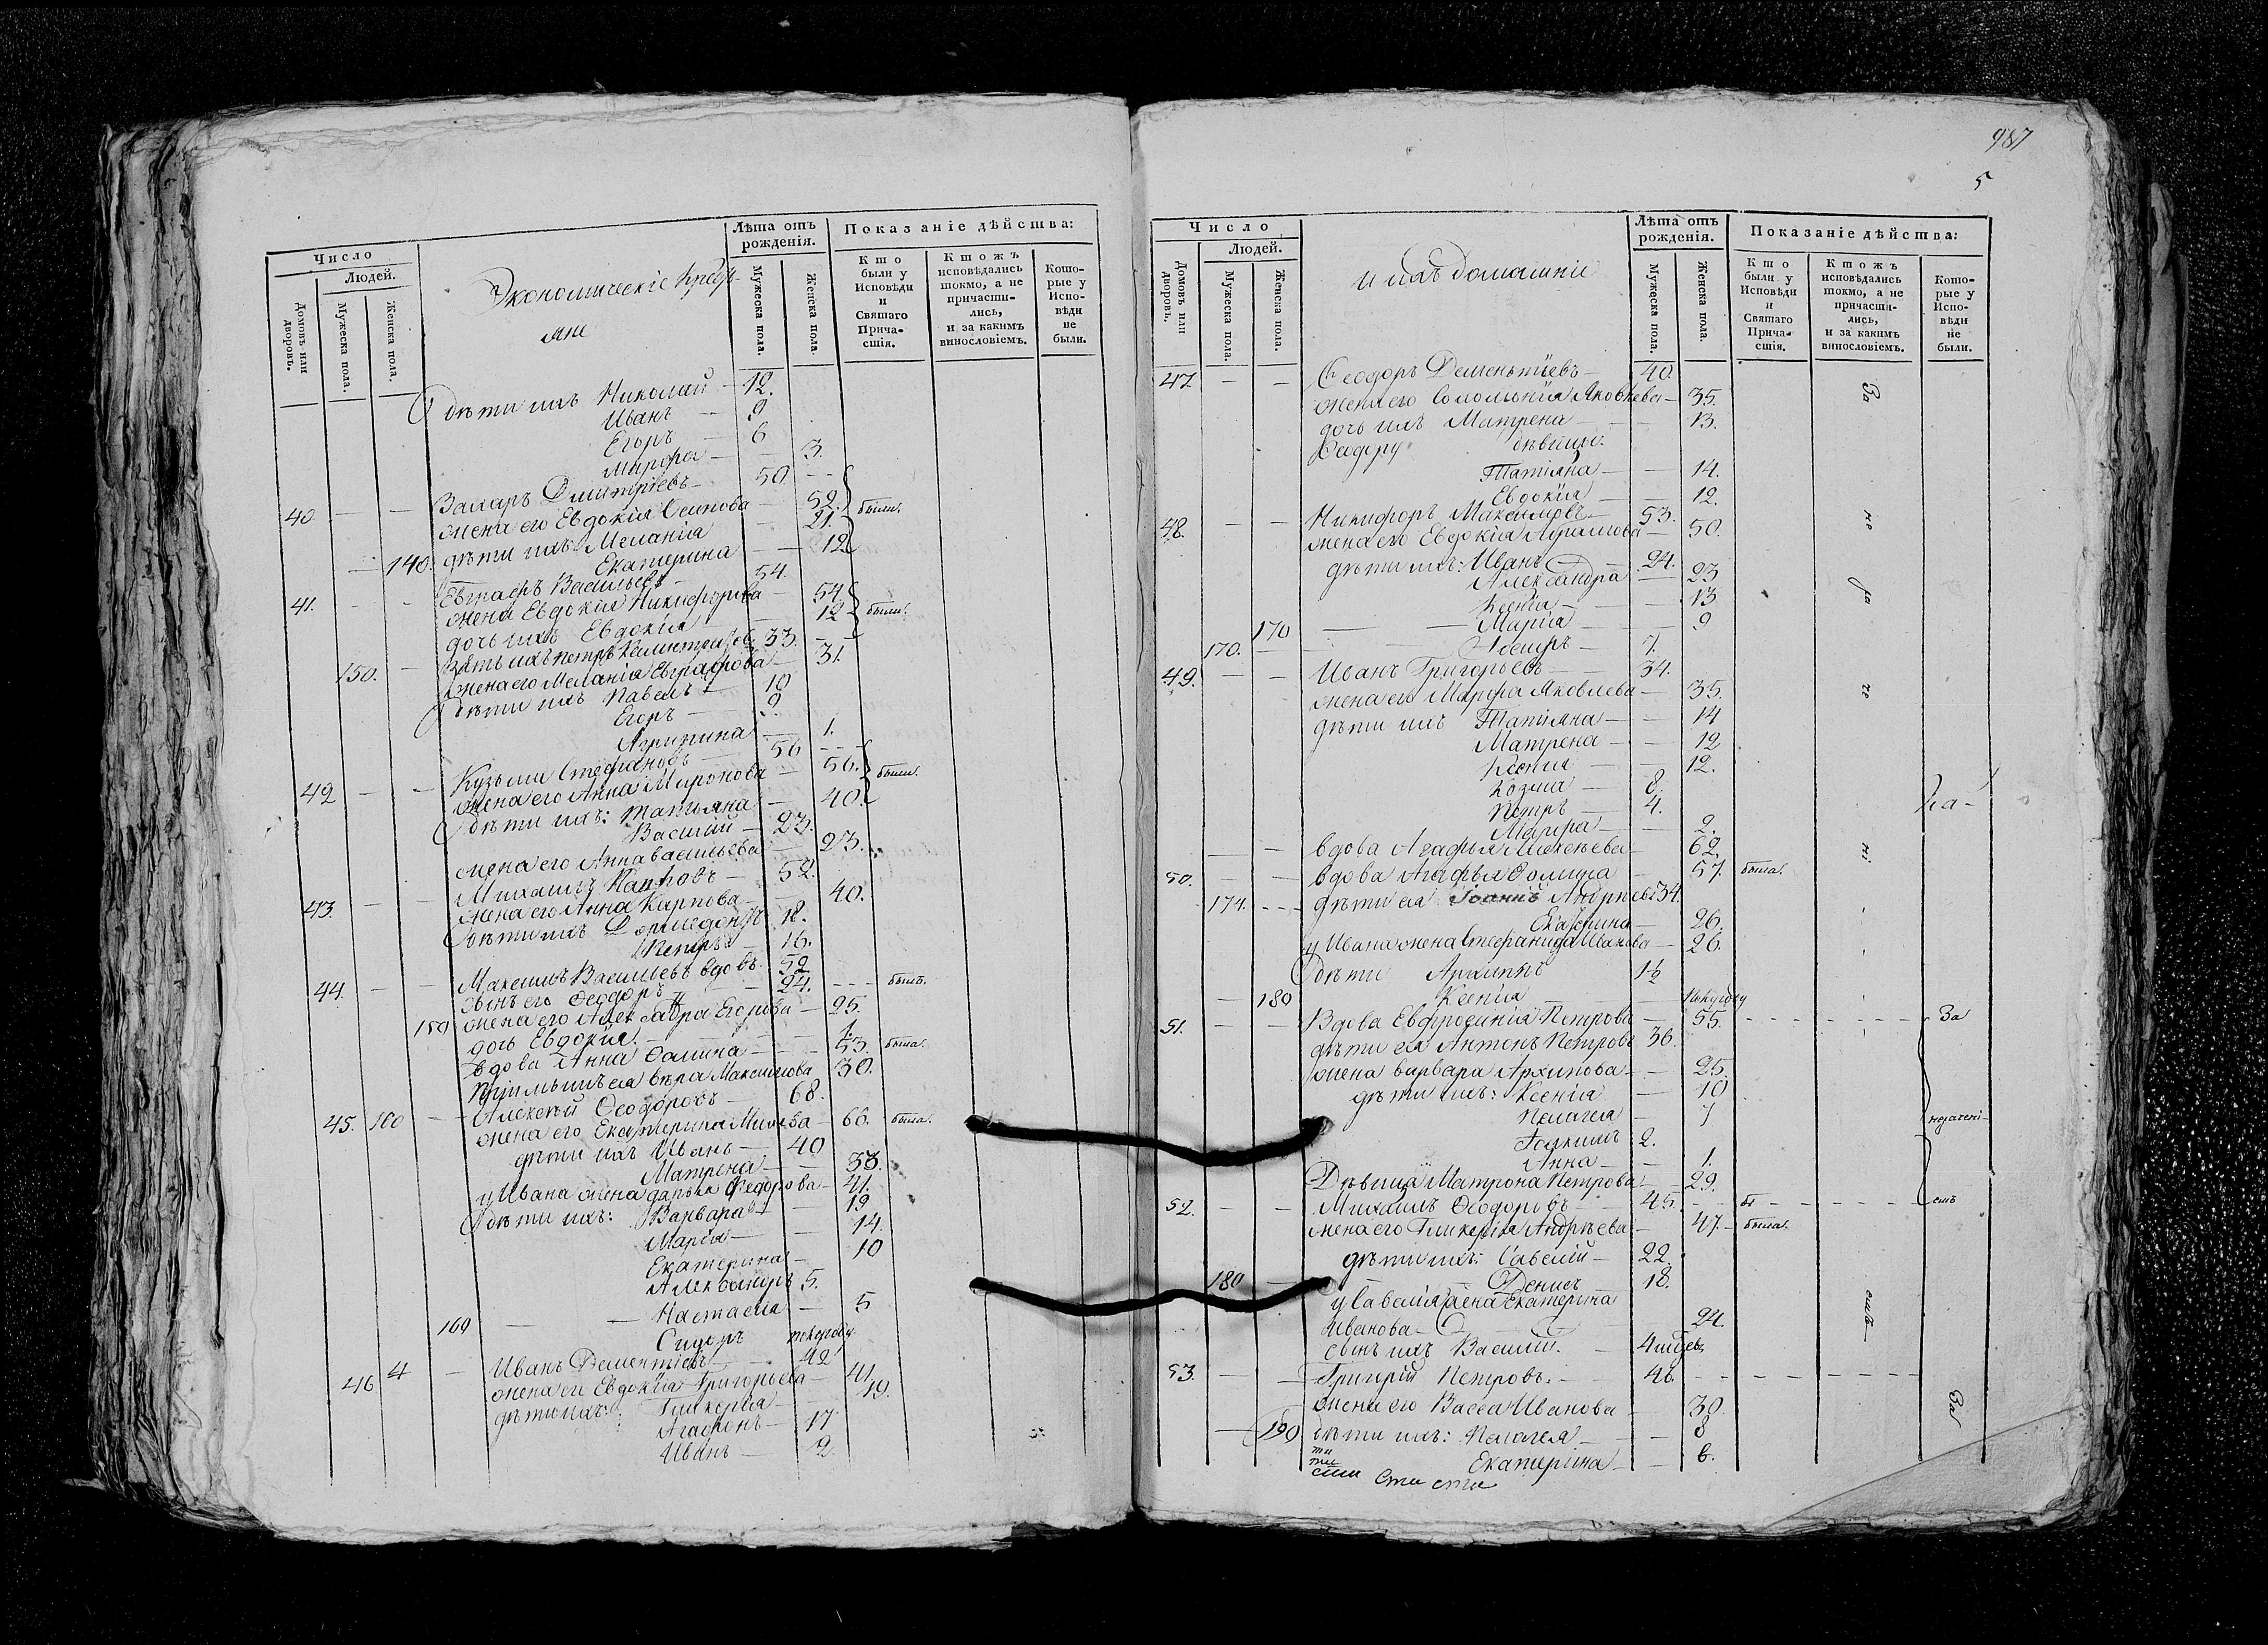 Число
Людей.
Домовъ или дворовъ.
Мужеска пола.
Женска пола.
Экономическіе крестьяне
Лѣта отъ рожденія.
Мужеска пола.
Женска пола.
Показаніе дѣйства:
Кто были у Исповѣди и Святаго Причастія.
Ктожъ исповѣдались токмо, а не причастились, и за какимъ винословіемъ.
Которые у Исповѣди не были.
дѣти ихъ Николай — 12.
Иванъ — 9
Егоръ — 6
Марфа — — 3.
40 — — Дмитріевъ — 50 — —
жена его Евдокія Осипова — 52. были.
дѣти ихъ: Меланія — 21.
140. Екатерина — — 12
41. — — Евграфъ Васильевъ — 54.
жена Евдокія Никифорова — 54 были.
дочь ихъ Евдокія — 12
зять ихъ Петръ 33. —
150. — жена его Меланія Евграфова — 31.
дѣти ихъ Павелъ — 10
Егоръ — 9.
Агрипина — 1.
42 — — Кузьма Стефановъ — 56 — — —
жена его Анна Миронова — 56. были.
дѣти ихъ: Татіяна — 40.
Василій — 23.
жена его Анна Васильева — 23.
43. — — Михаилъ Карповъ — 52.
жена его Анна Карпова — 40.
дѣти ихъ 18.
Петръ — 16.
44. — — Максимъ Васильевъ вдовъ. 52 — — — былъ.
сынъ его Феодоръ — 24.
150 жена его Александра Егорова — 25.
дочь Евдокія. — — 1.
вдова Анна Фомина — — 53. была.
Вѣра Максимова 30.
45. 160 — Алексѣй Феодоровъ — 68.
жена его Екатерина — 66. была.
дѣти ихъ Иванъ — 40
Матрена — — 33.
у Ивана жена Дарья Федорова — 41.
дѣти ихъ: Варвара — 19
Марія — — 14.
Екатерина — 10
Александръ 5.
160 — — Настасія — 5
Сидоръ
46 4 — Иванъ Дементіевъ — 42
жена его Евдокія Григорьева — 41
дѣти ихъ: Гликерія — 19.
Агафонъ — 17.
Иванъ — 2.
987
5
Число
Людей.
Домовъ или дворовъ.
Мужеска пола.
Женска пола.
и ихъ домашніе
Лѣта отъ рожденія.
Мужеска пола.
Женска пола.
Показаніе дѣйства:
Кто были у Исповѣди и Святаго Причастія.
Ктожъ исповѣдались токмо, а не причастились, и за какимъ винословіемъ.
Которые у Исповѣди не были.
47. — — Феодоръ Дементіевъ — 40.
жена его Соломонія Яковлева — 35.
дочь ихъ Матрена — — 13.
дѣвицы:
Татіяна — — 14.
Евдокія — — 12.
48. — — Никифоръ Максимовъ — 53.
жена его Евдокія — 50.
дѣти ихъ: Иванъ — 24.
Александра — 23
Ксенія — — 13
170 — — Марія — — 9
170. — — 7.
49. — — Иванъ Григорьевъ — 34.
жена его Марфа Яковлева — 35.
дѣти ихъ Татіяна — — 14
Матрена — — 12
Ксенія — — 12.
Козма — 8.
Петръ — 4.
Марфа — — 2.
— — вдова Агафья — 62.
50. — — вдова Агафья Фомина — 57. была.
174. — — — дѣти ея Іоаннъ Андреевъ 34.
Екатерина — 26.
у Ивана жена Стефанида Иванова — 26.
дѣти Архипъ 1½
— 180 Ксенія — полугоду
51. — — Вдова Евфросинія Петрова — 55. — — — — — За
дѣти ея Антонъ Петровъ 36.
жена Варвара Архипова — — 25.
дѣти ихъ: Ксенія — 10
Пелагея — 7
2.
Анна — — 1.
Дѣвица Матрона Петрова — 29.
52. — — Михаилъ Феодоровъ — 45.
жена его Гликерія Андрѣева — 47. — была.
дѣти ихъ: Савелій — 22.
180 — Денисъ — 18.
у Савелія жена Екатерина
Иванова — 24.
сынъ ихъ Василій. —
53. — — Григорій Петровъ. — 46. — — — — — —
жена его Васса Иванова — 30.
— 190 дѣти ихъ: Пелагея — — 8
Екатерина — — 6.
За
не
ра
че
ні
емъ
За
нерачені-
емъ
За
ти
ти
сти сти сти